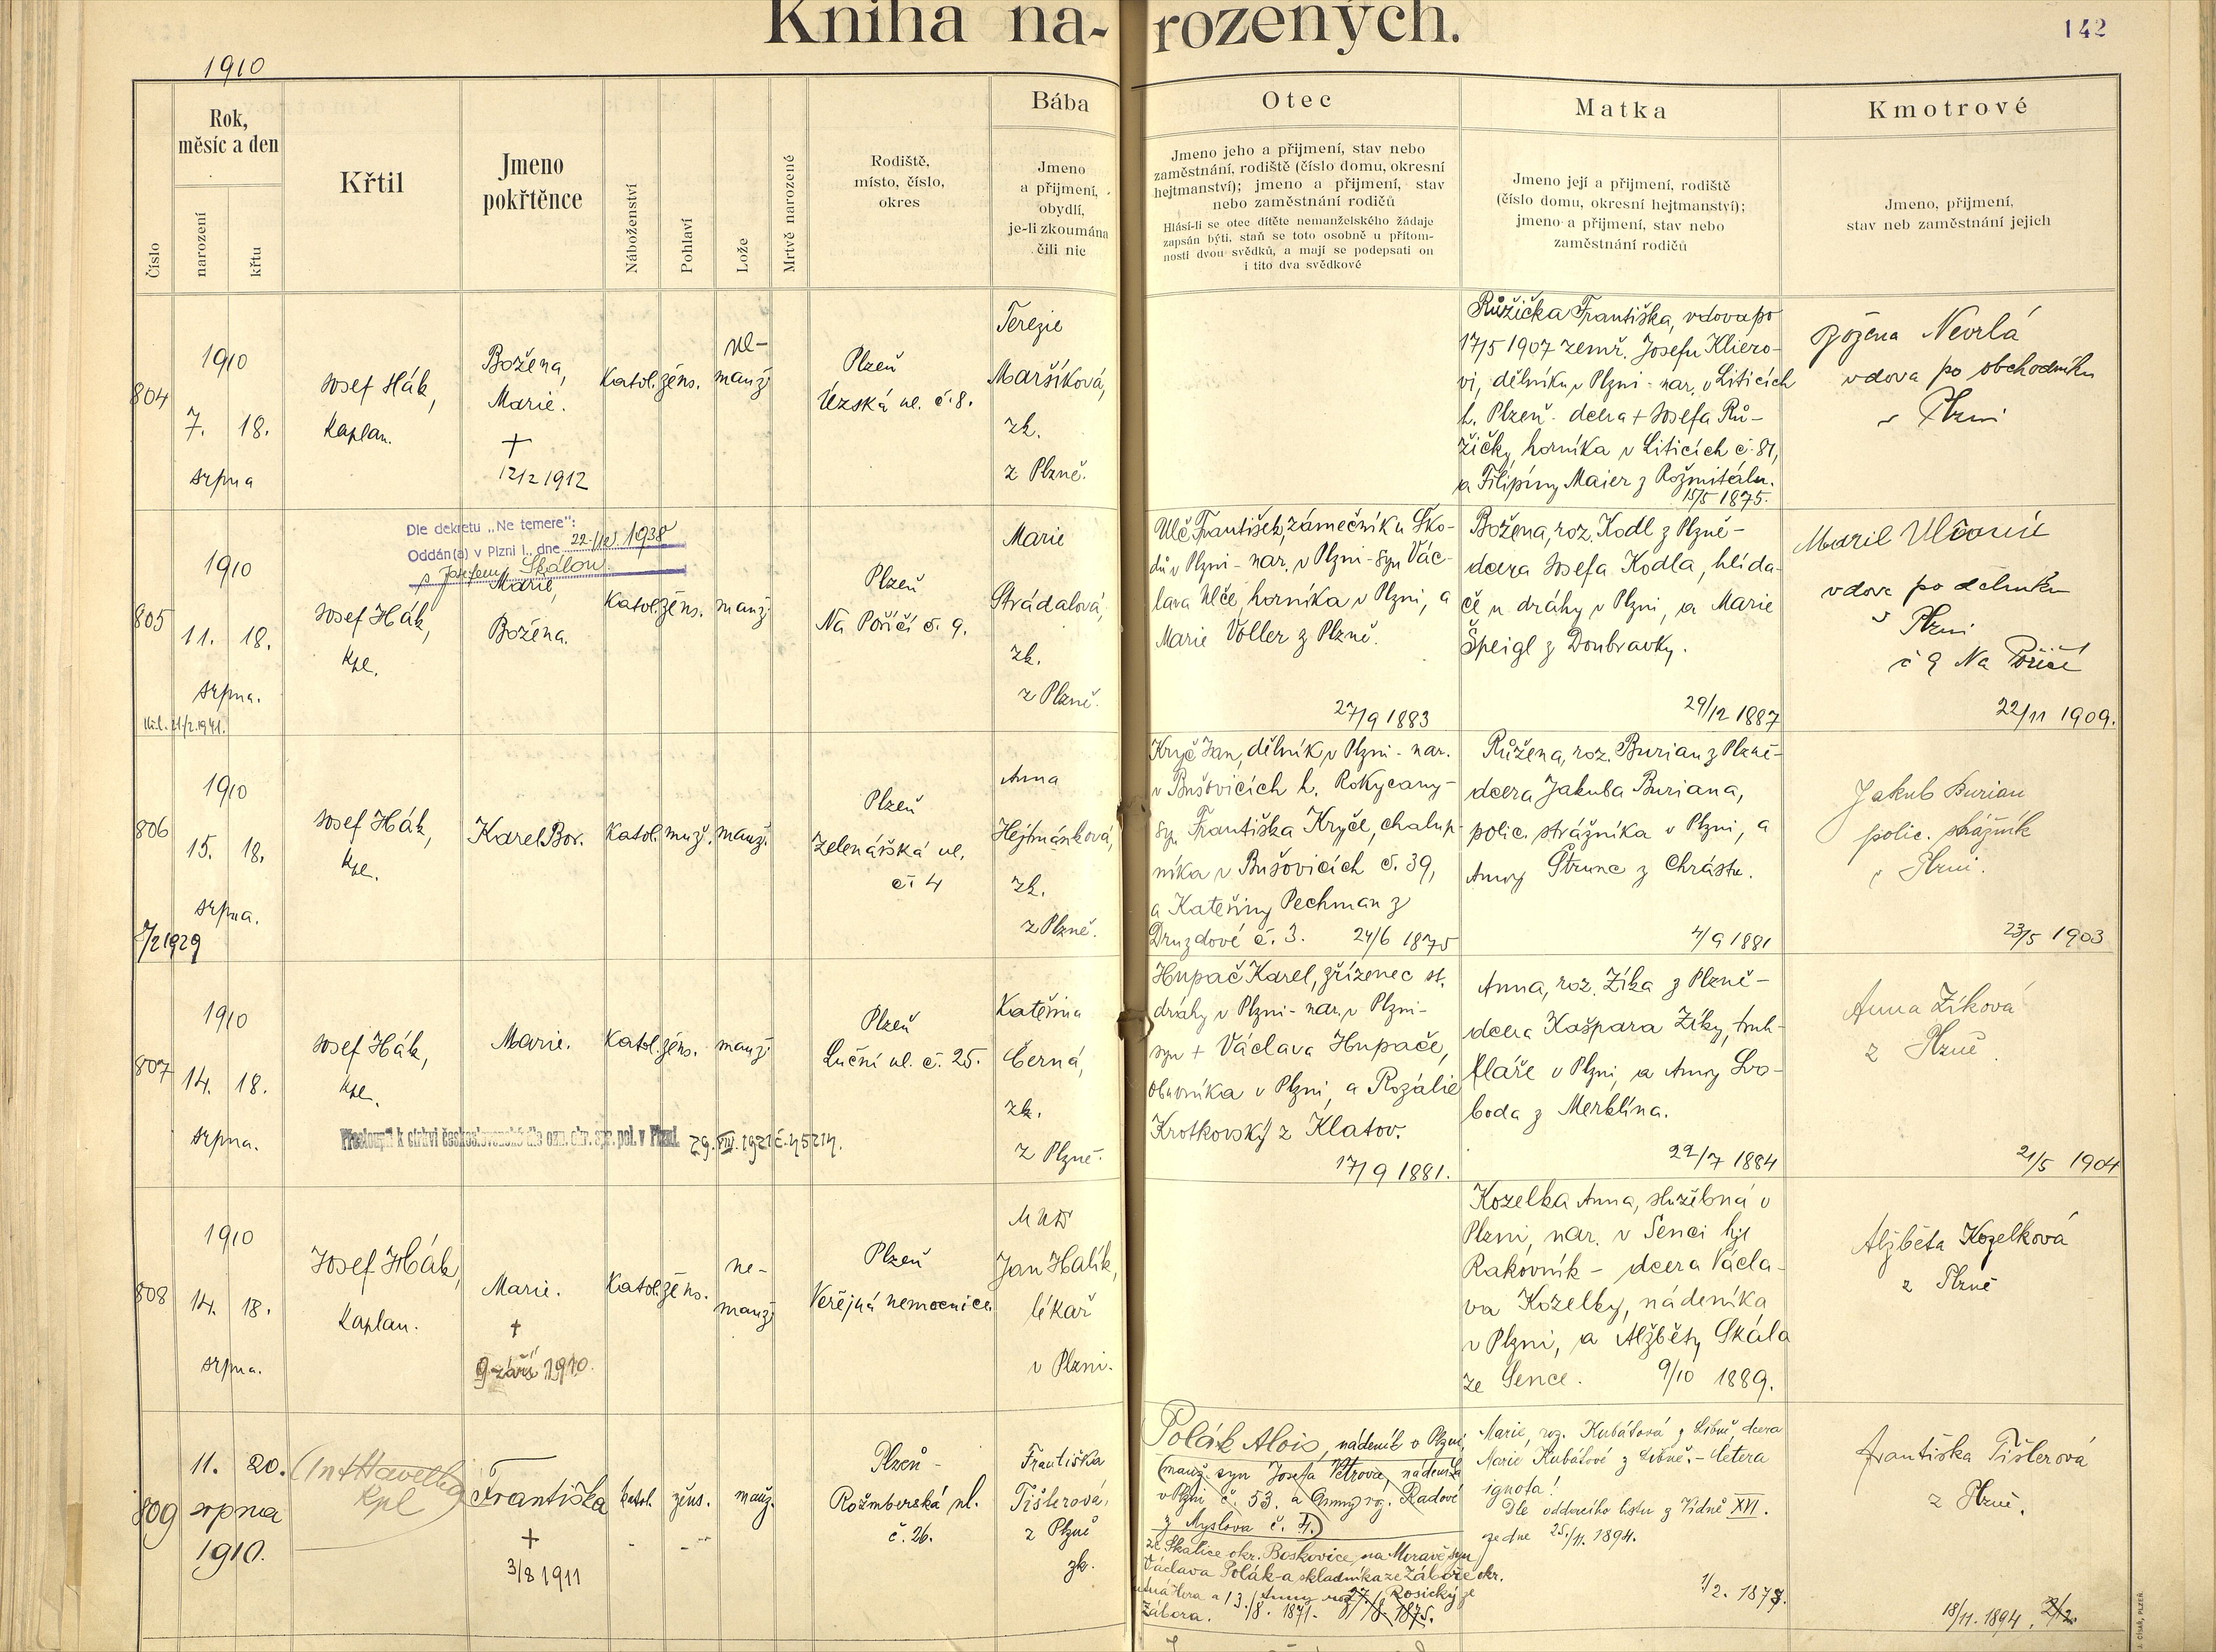 Kniha na-rozených.
142
1910
Číslo
Rok,
měsíc a den
narození
křtu
Křtil
Jmeno
pokřtěnce
Náboženství
Pohlaví
Lože
Mrtvě narozené
Rodiště,
místo, číslo,
okres
Bába
Jmeno
a příjmení,
obydlí,
je-li zkoumána
čili nic
Otec
Jmeno jeho a přijmení, stav nebo
zaměstnání, rodiště (číslo domu, okresní
hejtmanství); jmeno a přijmení, stav
nebo zaměstnání rodičů
Hlásí-li se otec dítěte nemanželského žádaje
zapsán býti, staň se toto osobně u přítom-
nosti dvou svědků, a mají se podepsati on
i tito dva svědkové
Matka
Jmeno její a přijmení, rodiště
(číslo domu, okresní hejtmanství);
jmeno a přijmení, stav nebo
zaměstnání rodičů
Kmotrové
Jmeno, přijmení,
stav neb zaměstnání jejich
804
1910
7. 18.
srpna
Josef Hák,
Kaplan.
Božena,
Marie.
+
12/2 1912
Katol.
žens.
ne-
manž.
Plzeň
Úzská ul. č. 8.
Terezie
Maršíková,
zk.
z Plzně.
Růžička Františka, vdova po
17/5 1907 zemř. Josefu Kliero-
vi, dělníku v Plzni - nar. v Liticích
h. Plzeň - dcera + Josefa Rů-
žičky, horníka v Liticích č. 81,
a Filipíny Maier z Rožmitálu.
15/5 1875.
Božena Nevrlá
vdova po obchodníku
v Plzni
805
1910
11. 18.
srpna.
21/2.1941.
Josef Hák,
kpl.
Dle dekretu „Ne temere":
Oddán(a) v Plzni I., dne 22. 1938
s Josefem Skálou.
Marie,
Božena.
Katol.
žens.
manž.
Plzeň
Na Poříčí č. 9.
Marie
Strádalová,
zk.
z Plzně.
Ulč František, zámečník u Ško-
dů v Plzni - nar. v Plzni - syn Vác-
lava Ulče, horníka v Plzni, a
Marie Voller z Plzně.
27/9 1883
Božena, roz. Kodl z Plzně -
dcera Josefa Kodla, hlída-
če u dráhy v Plzni, a Marie
Špeigl z Doubravky.
29/12 1887
Marie Ulčová
vdova po dělníku
v Plzni
č 9 Na Poříčí
22/11 1909.
806
1910
15. 18.
srpna.
/2 1929
Josef Hák,
kpl.
Karel Bor.
Katol.
muž.
manž.
Plzeň
Zelenářská ul.
č. 4
Anna
Hejtmánková,
zk.
z Plzně.
Kryč Jan, dělník v Plzni - nar.
v Bušovicích h. Rokycany -
syn Františka Kryče, chalup-
níka v Bušovicích č. 39,
a Kateřiny Pechman z
Druzdové č. 3. 24/6 1875
Růžena, roz. Burian z Plzně -
dcera Jakuba Buriana,
polic. strážníka v Plzni, a
Anny Štrunc z Chrástu.
4/9 1881
Jakub Burian
polic. strážník
v Plzni.
23/5 1903
807
1910
14. 18.
srpna.
Josef Hák,
kpl.
Marie.
Katol.
žens.
manž.
Přestoupil k církvi československé dle ozn. okr. spr. pol. v Plzni. 29. VIII. 1921 č. 45214.
Plzeň
Luční ul. č. 25.
Kateřina
Černá,
zk.
z Plzně.
Hupač Karel, zřízenec st.
dráhy v Plzni - nar. v Plzni -
syn + Václava Hupače,
obuvníka v Plzni, a Rozálie
Krotkovský z Klatov.
17/9 1881.
Anna, roz. Zíka z Plzně -
dcera Kašpara Zíky, truh-
láře v Plzni, a Anny Svo-
boda z Merklína.
22/7 1884
Anna Zíková
z Plzně.
21/5 1904
808
1910
14. 18.
srpna.
Josef Hák,
Kaplan.
Marie.
+
9. září 1910.
Katol.
žens.
ne-
manž.
Plzeň
Veřejná nemocnice.
MUDr
Jan Halík,
lékař
v Plzni.
Kozelka Anna, služebná v
Plzni, nar. v Senci hjt
Rakovník - dcera Václa-
va Kozelky, nádeníka
v Plzni, a Alžběty Skála
ze Sence. 9/10 1889.
Alžběta Kozelková
z Plzně
809
11. 20.
srpna
1910.
(Ant Havelka
kpl
Františka
+
3/8 1911
katol.
žens.
manž.
Plzeň -
Rožmberská ul.
č. 26.
Františka
Tišlerová,
z Plzně
zk.
Polák Alois, nádeník v Plzni,
(manž. syn Josefa Petrova, nádeníka
v Plzni č. 53. a Anny roz. Radové
z Myslova č. 4.)
ze Skalice okr. Boskovice, na Moravě syn
Václava Polák-a skladníka ze Záboře okr.
Kutná Hora a Anny roz. Rosický ze
Zábora. 13./8. 1871. 27./8. 1875.
Marie, roz. Kubátová z Libně, dcera
Marie Kubátové z Libně. - cetera
ignota!
Dle oddacího listu z Vídně XVI.
ze dne 25./11. 1894.
1/2. 1873.
Františka Tišlerová
z Plzně.
18/11. 1894. 2/2.